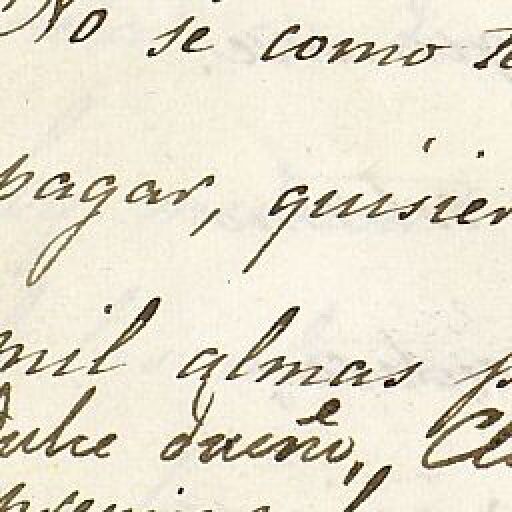 No se como te
pagar, quisier
mil almas p
dulce dueño,